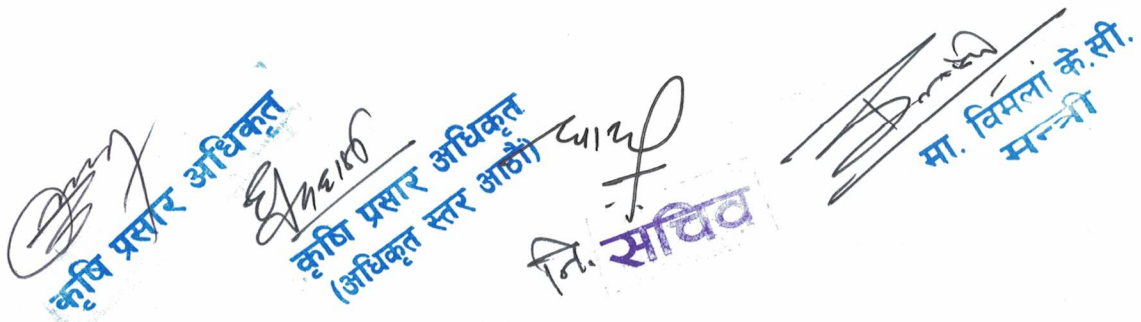 कृषि प्रसार अधिकृत
कृषि प्रसार अधिकृत
(अधिकृत स्तर आठौं)
नि. सचिव
मा. विमला के.सी.
मन्त्री